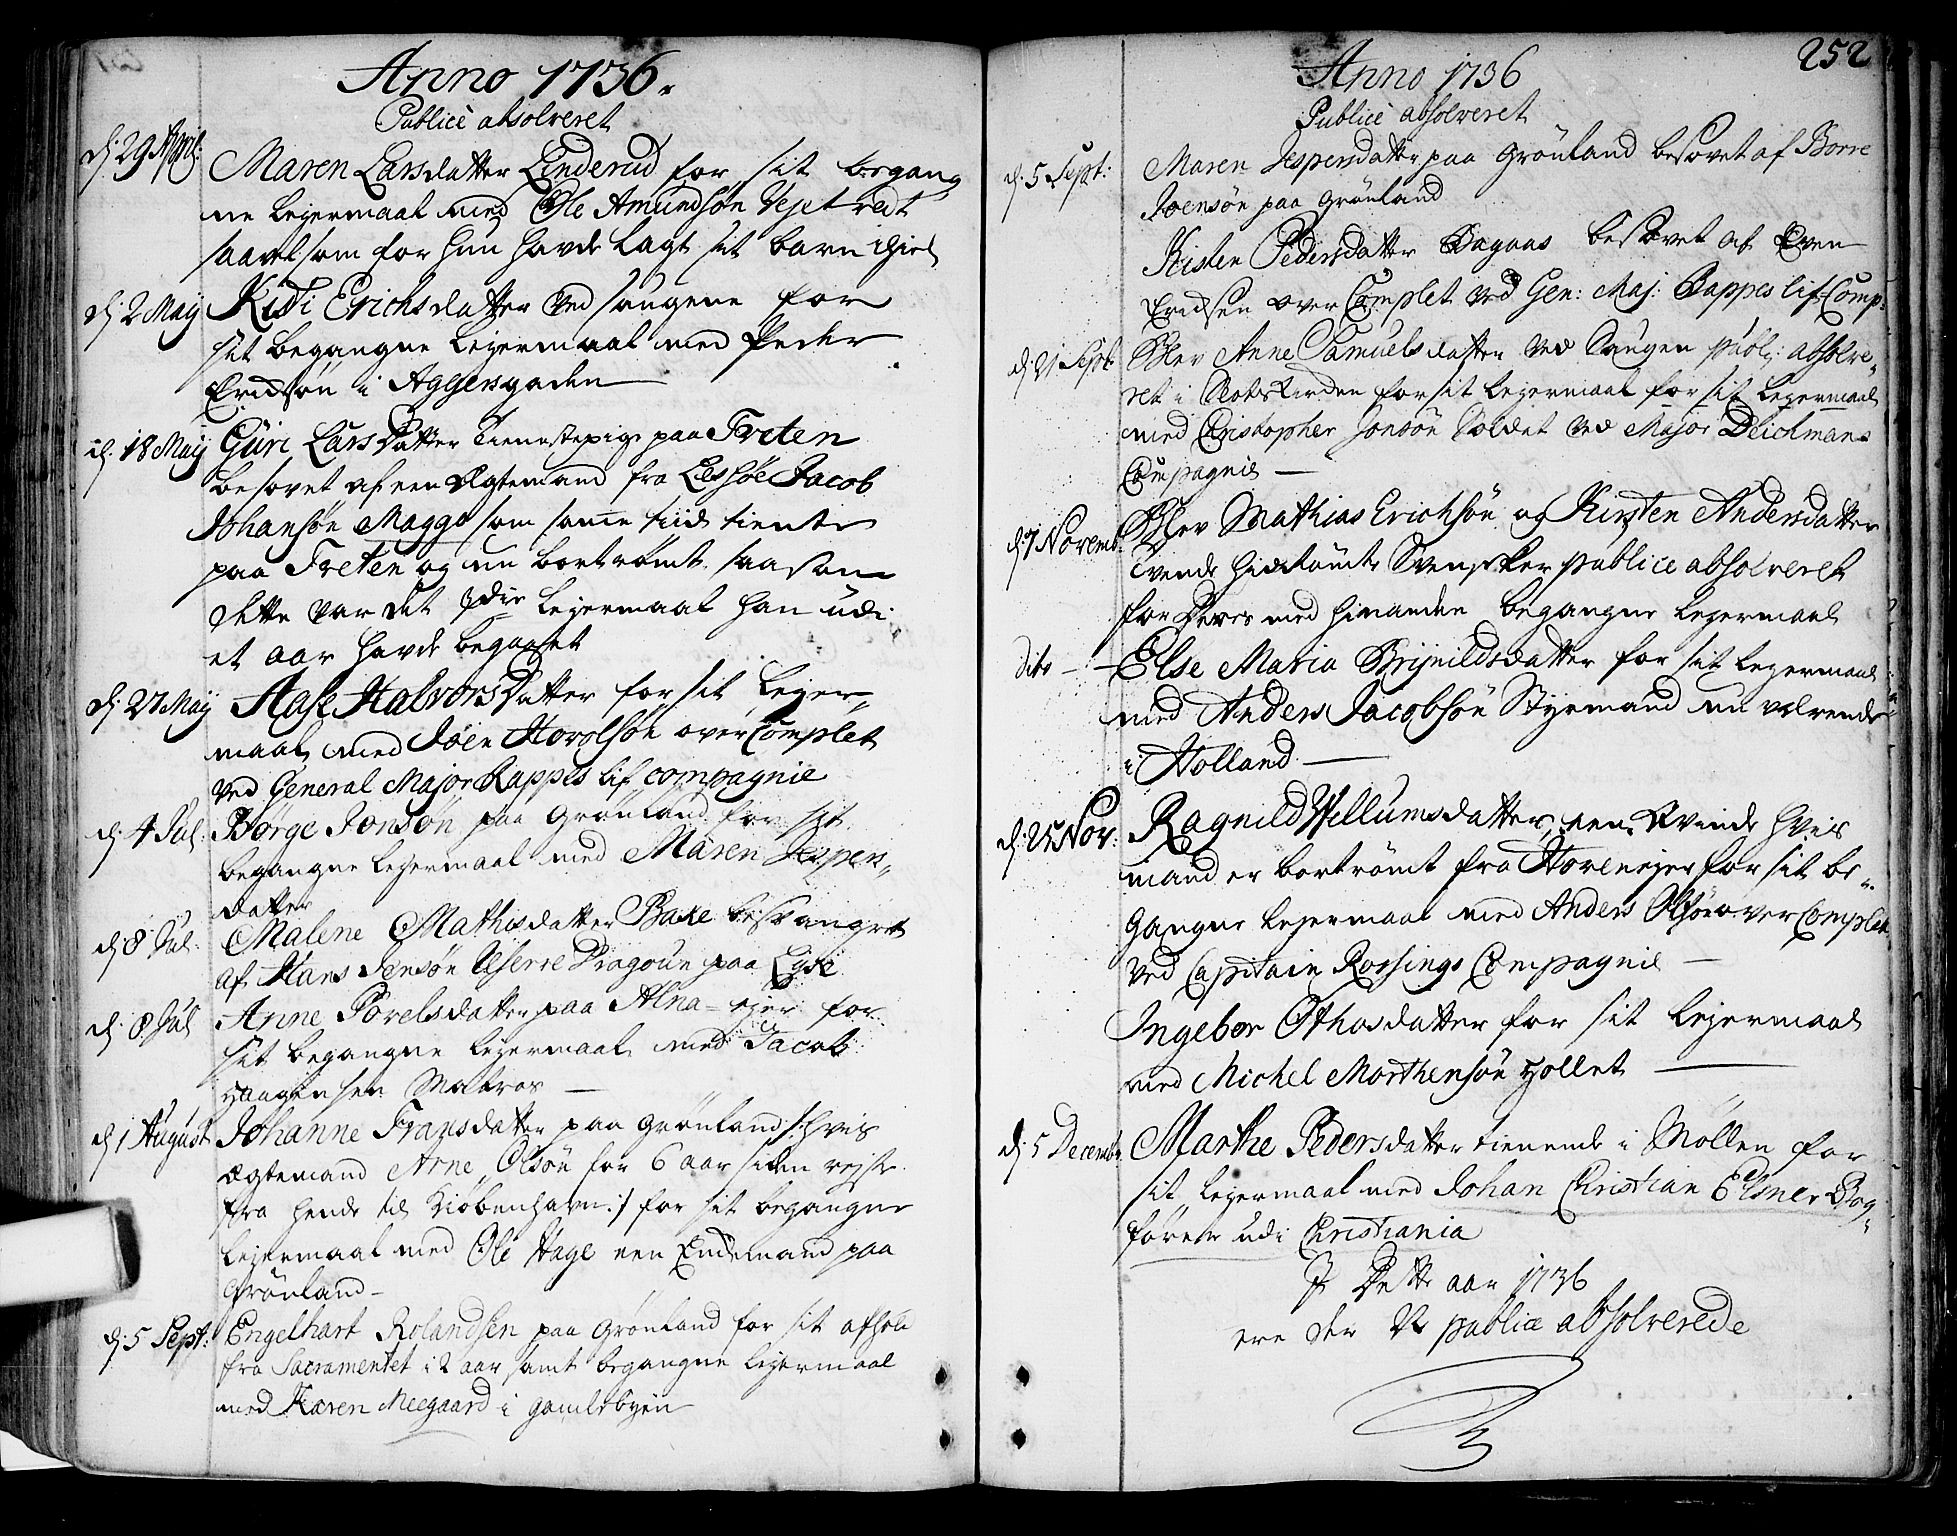 Anno 1736.
Publicè absolveret
d: 29 April: Maren Larsdatter Linderud for sit begang
ne lejermaal med Ole Amundsøn Vejet
saavelsom for hun havde lagt sit barn ihiel
d: 2 Maij Kidi Erichsdatter ved saugene for
sit begangne lejermaal med Peder
Eridsøn i Aggersgaden
d: 18 Maij Guri LarsDatter tienestepige paa Freten
besovet af een Ægtemand fra Jacob
Johansøn Maggo som samme tiid tiente
paa Treten og nu bortrømt saasom
dette var det 3die lejermaal han udi
et aar havde begaaet
d: 27 Maij Aase HalvorsDatter for sit lejer-
maal med Joen overComplet
ved General Major Rappes lif compagnie
d: 4 Jul: Børge Jonsøn paa Grønland for sit
begangne lejermaal med Maren Jespers-
datter
d: 8 Jul: Malene Mathisdatter Baxe besvangret
af Hans Jensøn Dragoun paa
d: 8 Jul Anne Povelsdatter paa Alna-ejer for
sit begangne lejermaal med Jacob
Haagensen Matros
d: 1 August Johanne Fransdatter paa Grønland /: hvis
ægtemand Arne Olsøn for 6 aar siden rejste
fra hende til Kiøbenhavn :/ for sit begangne
lejermaal med Ole Hage een Enckemand paa
Grønland
d: 5 Sept: Engelhart Rolandsen paa Grønland for sit afhold
fra Sacramentet i 2 aar samt begangne lejermaal
med Karen Meegaard i gamlebyen
252
Anno 1736
Publicè absolveret
d: 5 Sept: Maren Jespersdatter paa Grønland besovet af Borre
Joensøn paa Grønland
Kisten Pedersdatter Bagaas besovet af Even
Eridsen over Complet ved Gen: Maj: Rappes lif Comp:
d: 21 Sept Blev Anne Samuelsdatter ved Saugen publ: absolve-
ret i for sit lejermaal for sit lejermaal
med Christopher Jonsøn Soldat ved Major Deichmans
Compagnie
d: 7 Novemb: Blev Mathias Erichsøn og Kirsten Andersdatter
tvende hidrømte Svensker publice absolveret
for deres med hinanden begangne lejermaal
dito - Else Maria Brijnildsdatter for sit lejermaal
med Anders Jacobsøn Styrmand nu værende
i Holland
d: 25 Nov: Ragnild Willumsdatter, een Qvinde hvis
mand er bortrømt fra Hovenejer for sit be-
gangne lejermaal med Anders Olsøn overComplet
ved Capitain Rossings Compagnie
Ingebor Othosdatter for sit lejermaal
med Michel Morthensøn Hollet
d: 5 Decemb: Marthe Pedersdatter tienende i Møllen for
sit lejermaal med Johan Christian Elsner Bog-
fører udi Christiania
I Dette aar 1736
ere der 22 publicè absolverede